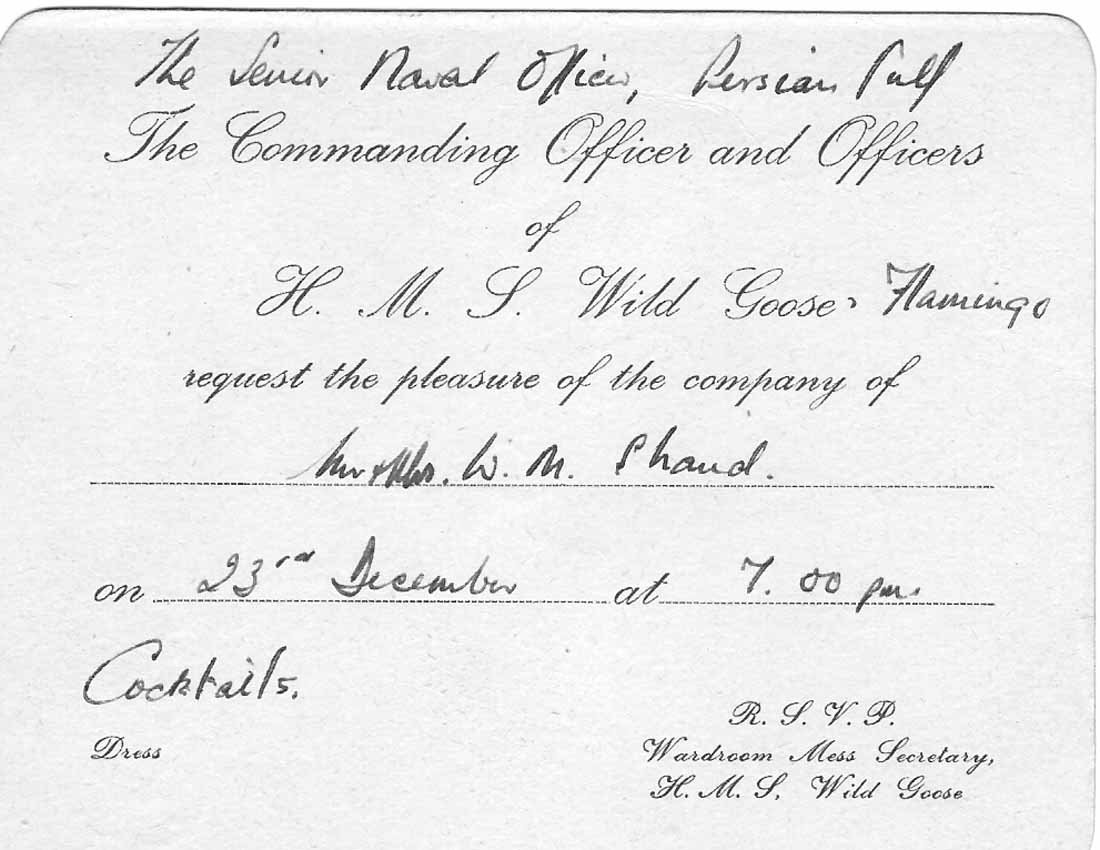 The Senior Naval Officer, Persian Gulf
The Commanding Officer and Officers
of
H. M. S. Wild Goose, Flamingo
request the pleasure of the company of
Mr & Mrs. W. M. Shand.
on 23rd December at 7.00 pm.
Cocktails.
Dress
R. S. V. P.
Wardroom Mess Secretary,
H. M. S. Wild Goose